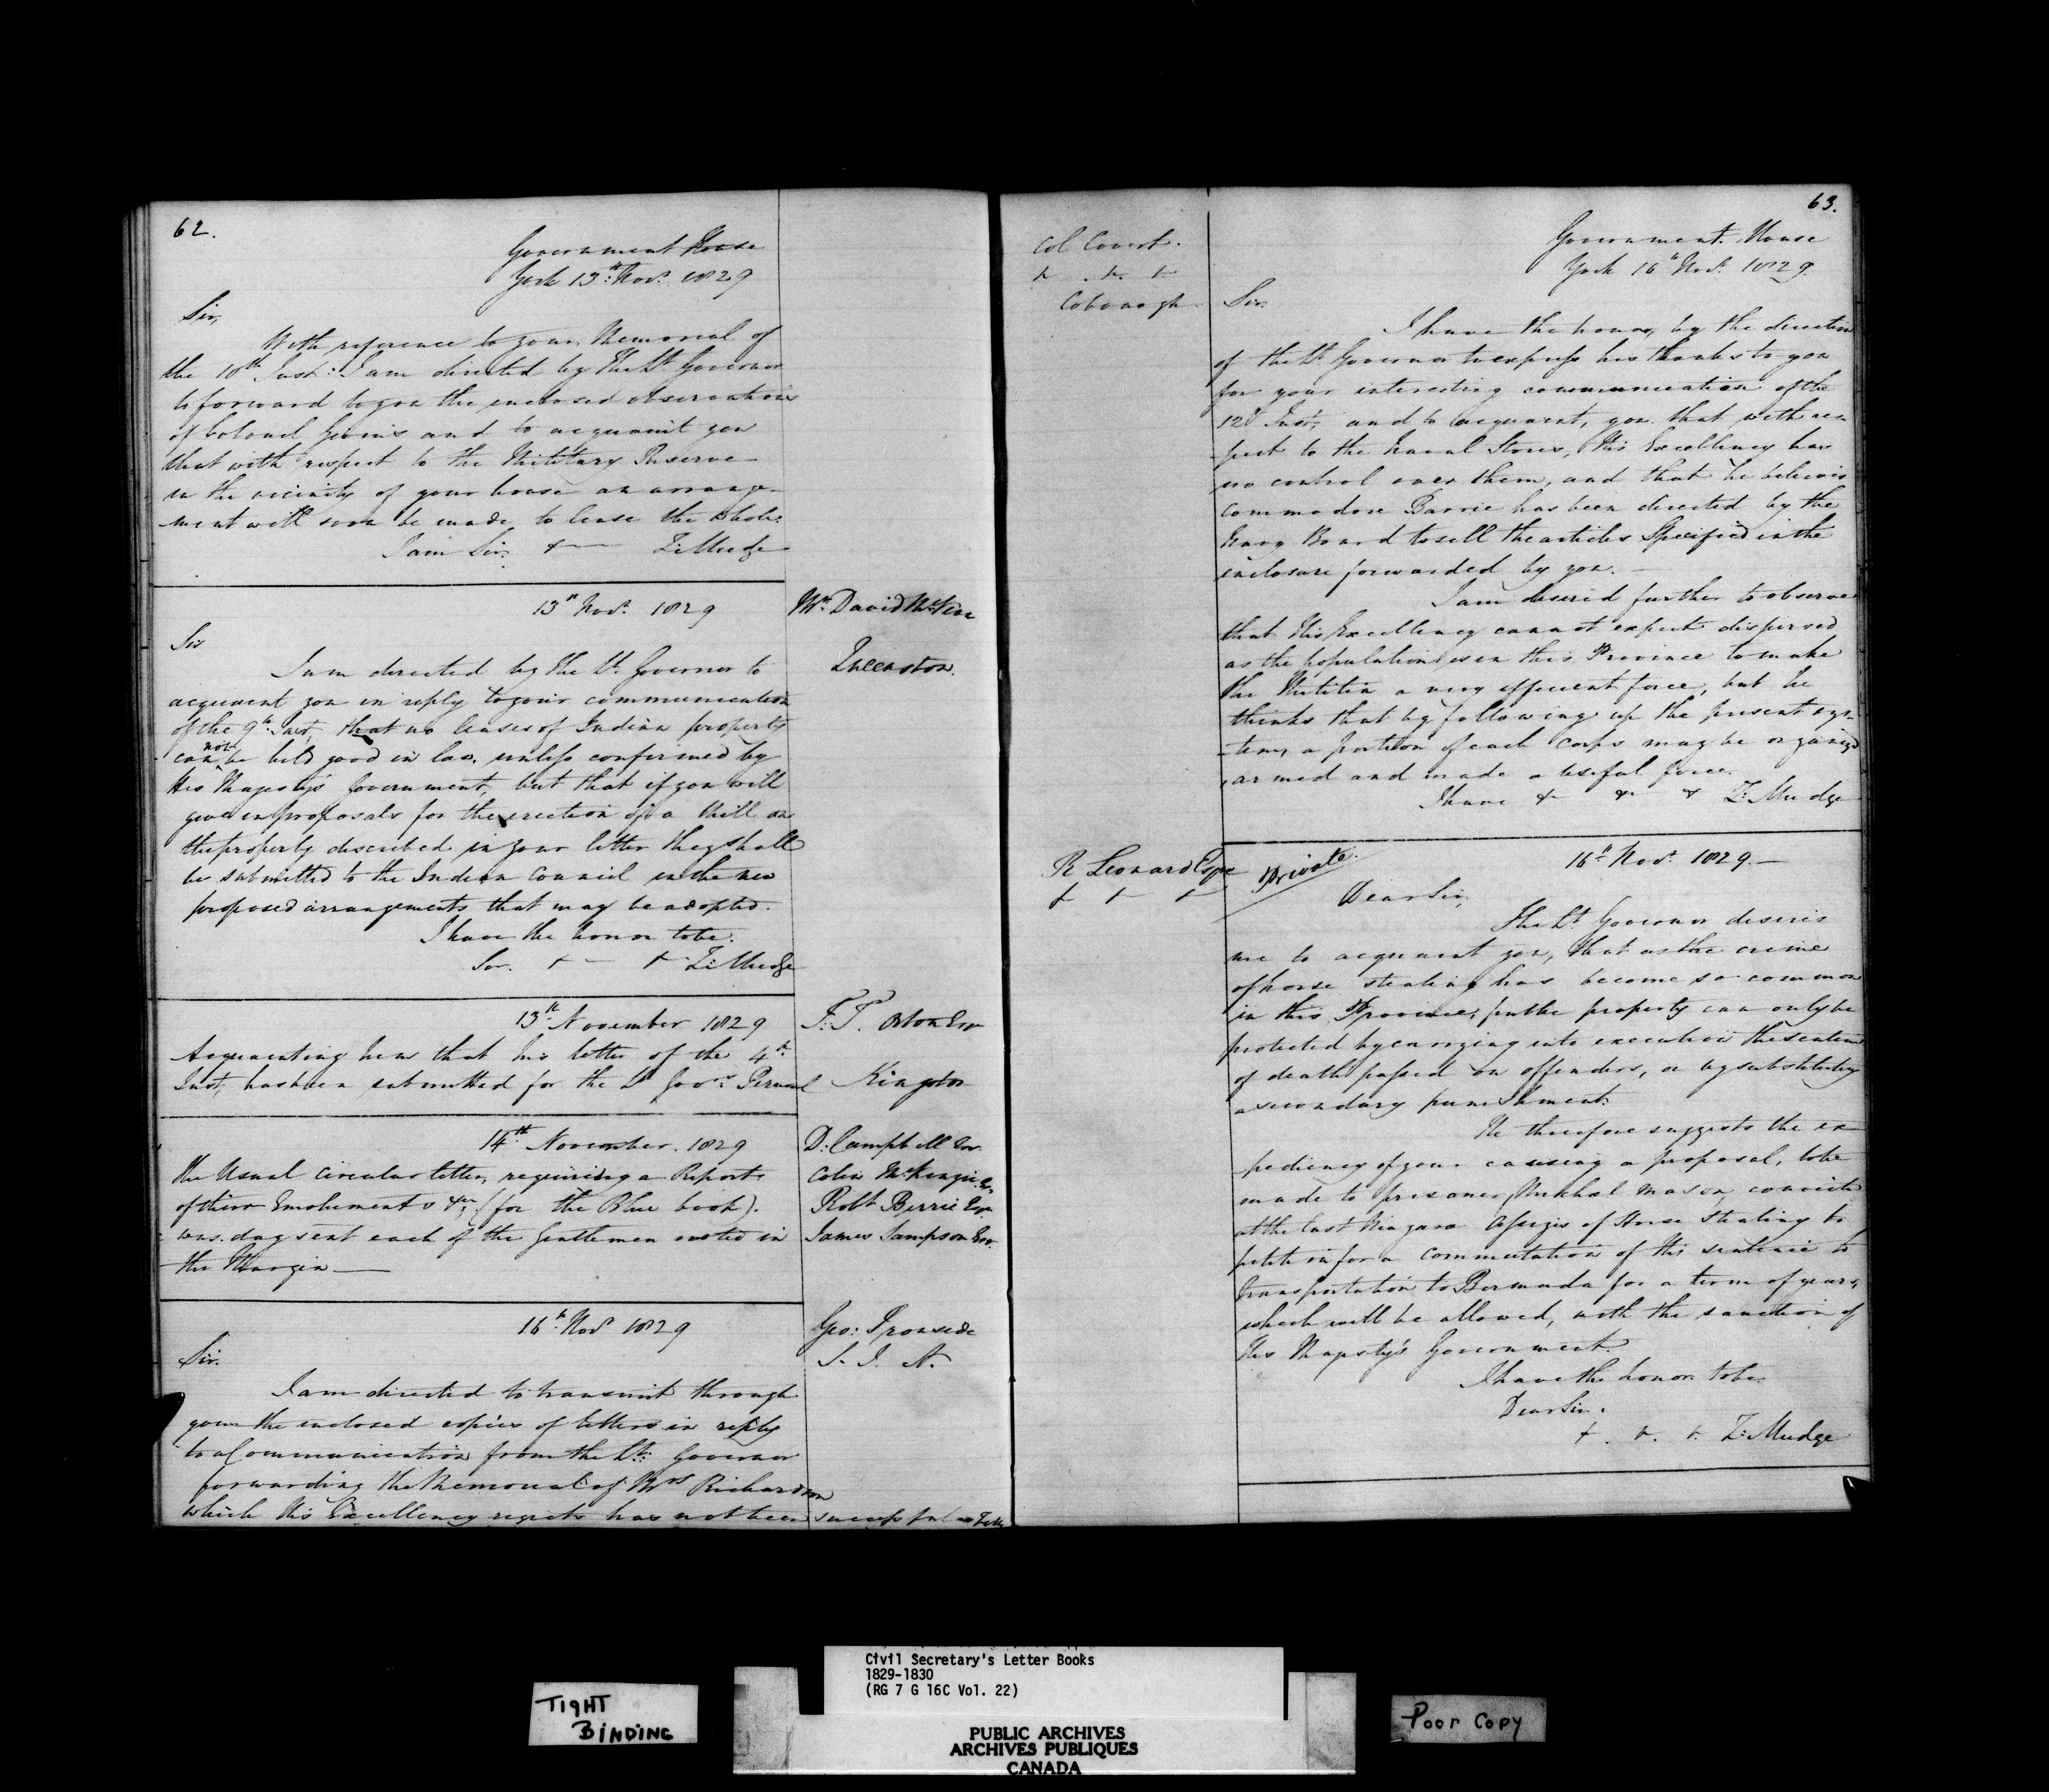 62.
Government House
York 13th Novr. 1829
Sir,
With reference to your Memorial of
the 10th Inst: I am directed by the Lt. Governor
to forward to you the enclosed observations
of Colonel Givins and to acquaint you
that with respect to the Military Reserve
in the vicinity of your house an arrange-
ment will soon be made to lease the whole.
I am Sir. &— Z: Mudge
13th Novr. 1829
Mr. David
Queenston.
Sir
I am directed by the Lt. Governor to
acquaint you in reply to your communication
of the 9th Inst, that no leases of Indian property
can not be held good in law, unless confirmed by
His Majesty's Government, but that if you will
give in proposals for the erection of a Mill on
the property described in your letter they shall
be submitted to the Indian Council in the new
proposed arrangements that may be adopted.
I have the honor to be.
Sir. + — + Z: Mudge
13th November 1829
F: T.
Kingston
Acquainting him that his letter of the 4th
Inst, has been submitted for the Lt Govrs. Perusal
14th November. 1829
D: Campbell Esr.
Colin McKenzie Esr
Robt Berrie Esr
James Sampson Esr.
The Usual Circular letter, requiring a Report
of their Emoluments &c; (for the Blue book).
was day sent each of the Gentlemen noted in
the Margin —
16th Novr 1829
Geo: Ironside
S. I. A.
Sir.
I am directed to transmit through
you the enclosed copies of letters in reply
to a Communication from the Lt: Governor
forwarding the Memorial of Mrs Richardson
which His Excellency regrets has not been successful
63.
Col Covert.
+ . +. +
Cobourgh
Government. House
York 16th Novr. 1829.
Sir.
I have the honor, by the direction
of the Lt. Governor to express his thanks to you
for your interesting communication of the
12th Inst, and to acquaint, you that with res-
-pect to the Naval Stores, His Excellency has
no control over them, and that he believes
Commodore Barrie has been directed by the
Navy Board to sell the articles Specified in the
enclosure forwarded by you. —
I am desired further to observe
that His Excellency cannot expect dispersed
as the population is in this Province to make
the Militia a very efficient force, but he
thinks that by following up the present sys-
-tem, a portion of each Corps may be organized
, armed and made a useful force.
I have & & & Z: Mudge
R Leonard Esqre
+ + +
Private.
16th Novr. 1829. —
Dear Sir,
The Lt. Governor desires
me to acquaint you, that as the crime
of horse stealing has become so common
in this Province, property can only be
protected by carrying into execution the sentence
of death passed on offenders, or by substituting
a secondary punishment.
He therefore suggests the ex-
pediency of your causing a proposal, to be
made to prisoner, Michael Mason, convicted
at the last Niagara Assizes of Horse Stealing to
petition for a commutation of his sentence to
transportation to Bermuda for a term of years,
which will be allowed, with the sanction of
His Majesty's Government.
I have the honor to be.
Dear Sir.
+ . +. +. Z: Mudge
TIGHT
BINDING
Civil Secretary's Letter Books
1829-1830
(RG 7 G 16C Vol. 22)
PUBLIC ARCHIVES
ARCHIVES PUBLIQUES
CANADA
Poor Copy